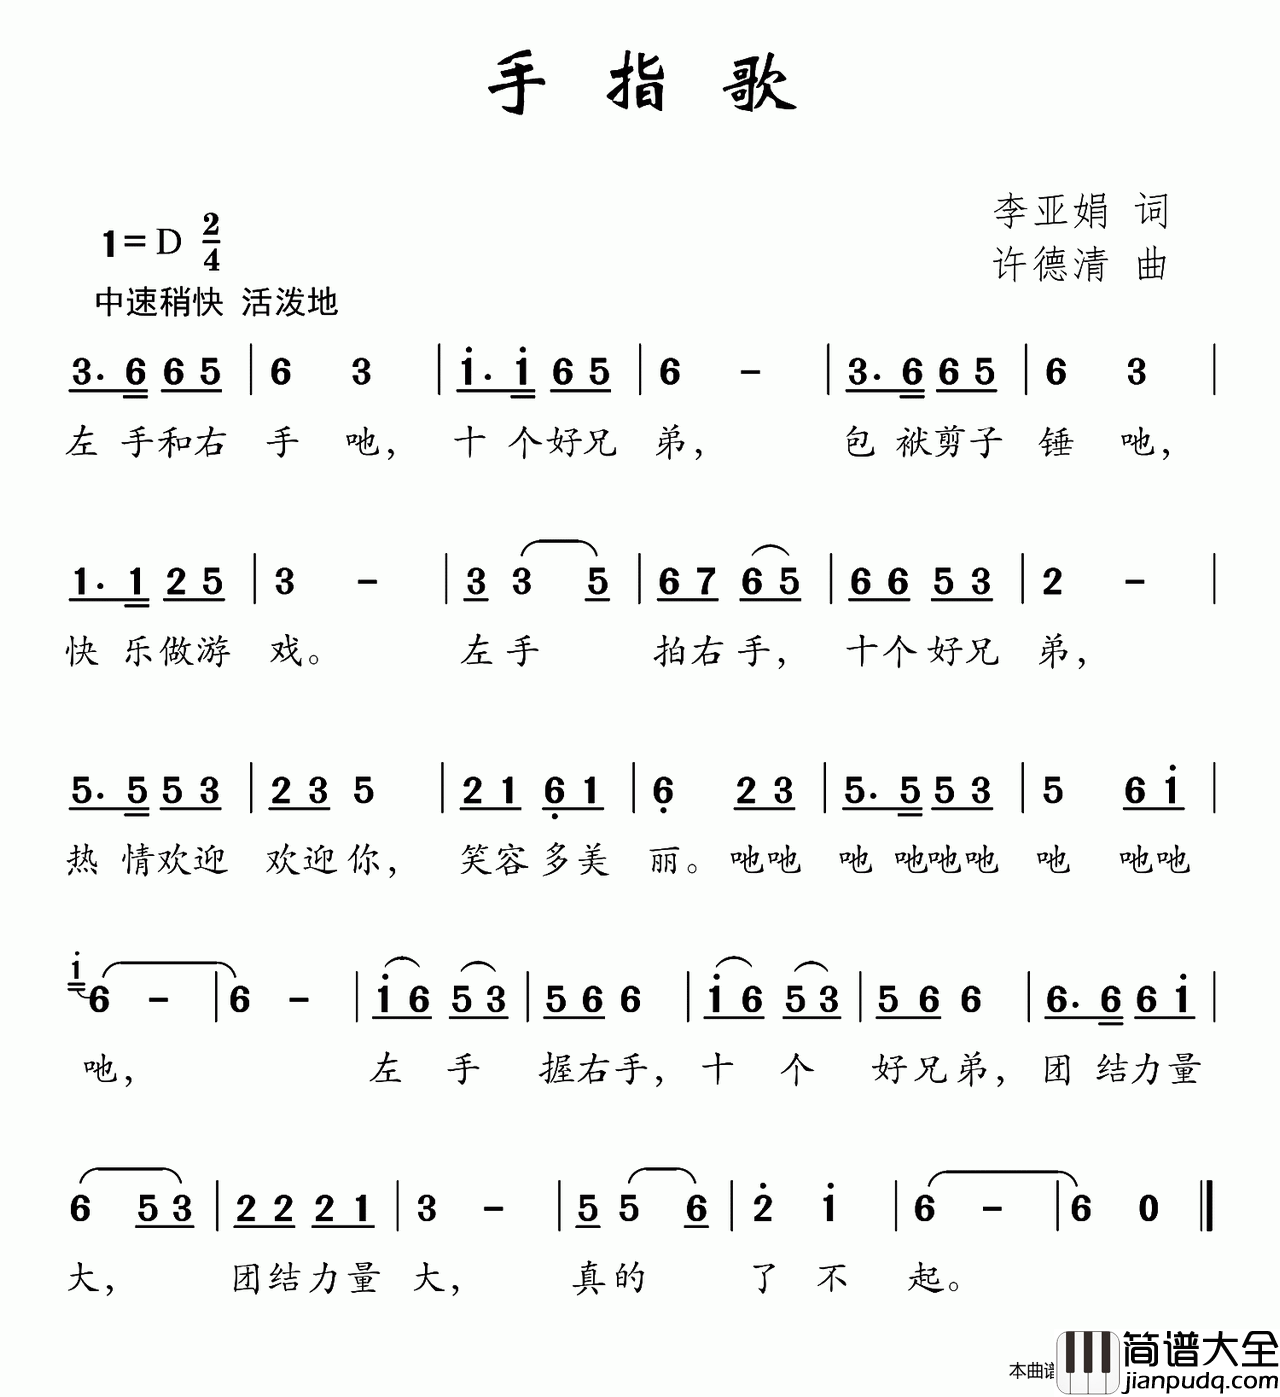 手 指 歌
李亚娟 词
1=D 2/4
许德清 曲
中速稍快 活泼地
3. 6 6 5 | 6 3 | 1. 1 6 5 | 6 - | 3. 6 6 5 | 6 3 |
左 手和右 手 吔， 十 个好兄 弟， 包 袱剪子 锤 吔，
1. 1 2 5 | 3 - | 3 3 5 | 6 7 6 5 | 6 6 5 3 | 2 - |
快 乐做游 戏。 左手 拍右手， 十个好兄 弟，
5. 5 5 3 | 2 3 5 | 2 1 6 1 | 6 2 3 | 5. 5 5 3 | 5 6 1 |
热 情欢迎 欢迎你， 笑容多美 丽。吔吔 吔 吔吔吔 吔 吔吔
1 6 - | 6 - | 1 6 5 3 | 5 6 6 | 1 6 5 3 | 5 6 6 | 6. 6 6 1 |
吔， 左 手 握右手， 十 个 好兄弟， 团 结力量
6 5 3 | 2 2 2 1 | 3 - | 5 5 6 | 2 1 | 6 - | 6 0 ‖
大， 团结力量 大， 真的 了 不 起。
本曲谱
简谱大全
jianpudq.com